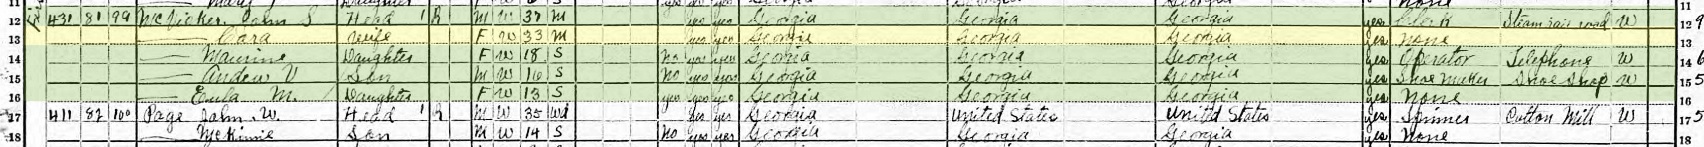 12 431 81 99 McVicker, John S Head 1 R M W 37 M yes yes Georgia Georgia Georgia yes Clerk Steam rail road W 12 9
13 — Cora Wife F W 33 M yes yes Georgia Georgia Georgia yes None 13
14 — Maurine Daughter F W 18 S No yes yes Georgia Georgia Georgia yes Operator Telephone W 14 6
15 — Andrew V Son M W 16 S No yes yes Georgia Georgia Georgia yes Shoe Maker Shoe Shop W 15 5
16 — Eula M. Daughter F W 13 S yes yes yes Georgia Georgia Georgia yes None 16
17 411 82 100 Page John W. Head 1 R M W 35 Wd yes yes Georgia United States United States yes Spinner Cotton Mill W 17 5
18 — McKinnie Son M W 14 S No yes yes Georgia Georgia Georgia yes None 18